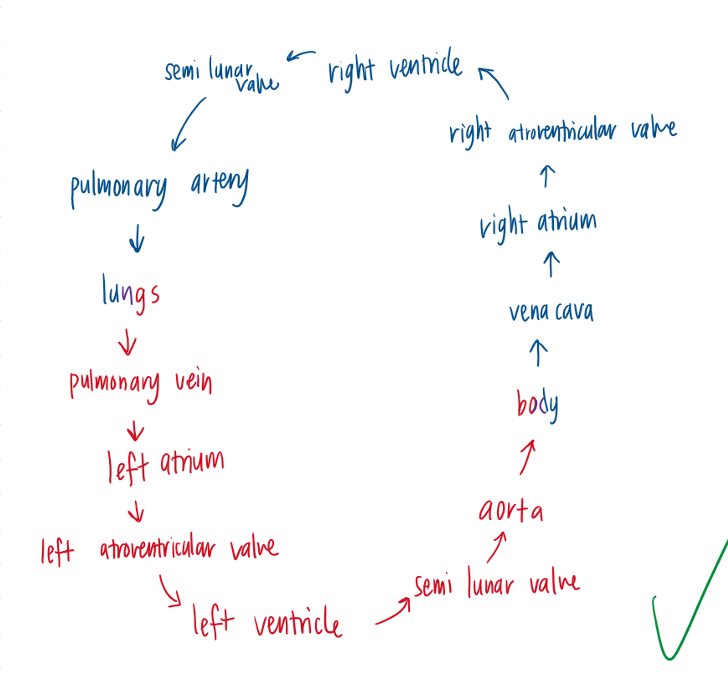 semi lunar
valve
right ventricle
right atroventricular valve
pulmonary artery
right atrium
lungs
vena cava
pulmonary vein
body
left atrium
aorta
left atroventricular valve
semi lunar valve
left ventricle